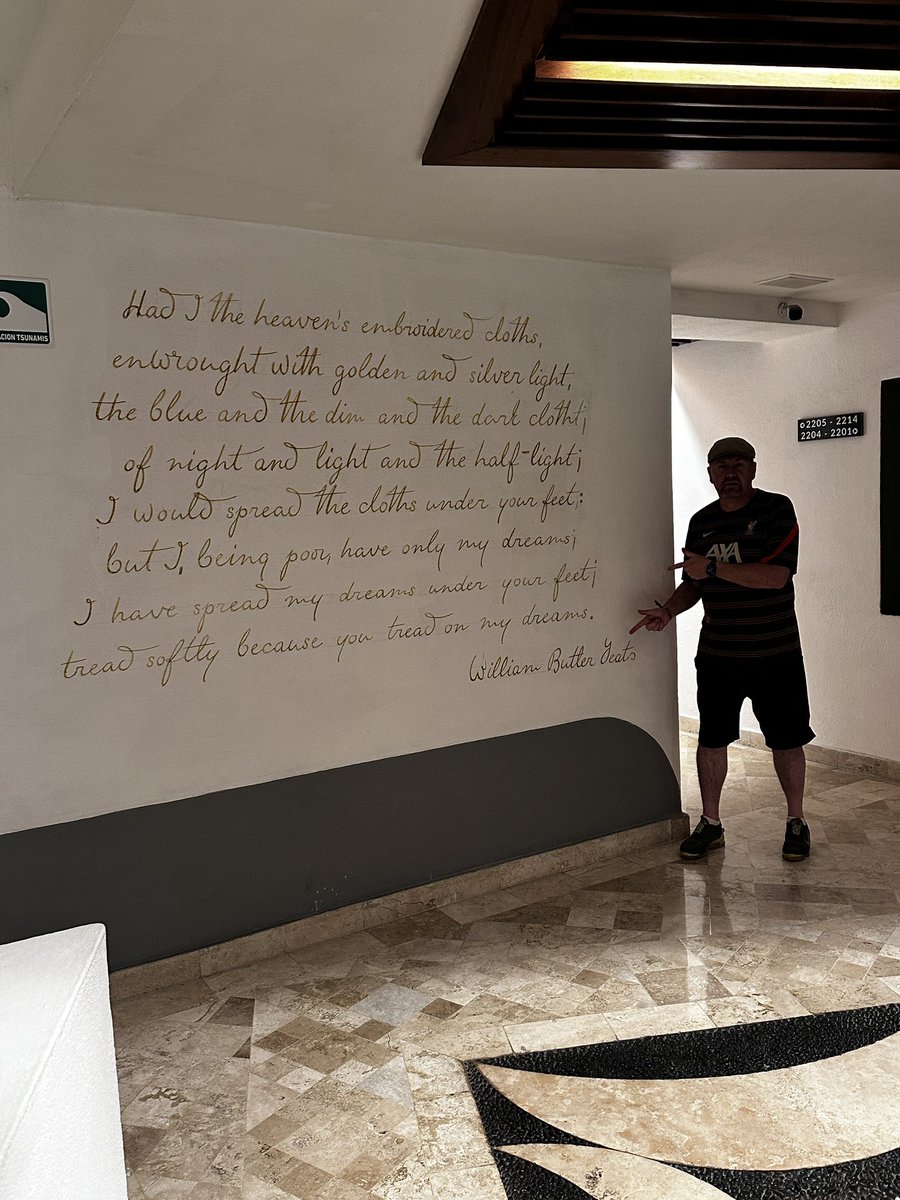 Had I the heaven's embroidered cloths,
enwrought with golden and silver light,
the blue and the dim and the dark cloths;
of night and light and the half-light;
I would spread the cloths under your feet;:
but I, being poor, have only my dreams;
I have spread my dreams under your feet;
tread softly because you tread on my dreams.
William Butler Yeats
CION TSUNAMIS
2205 - 2214
2204 - 2201
AXA